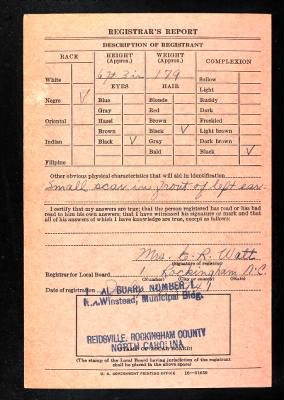 REGISTRAR'S REPORT
DESCRIPTION OF REGISTRANT
RACE
HEIGHT
(Approx.)
WEIGHT
(Approx.)
COMPLEXION
6 ft 3 in 179
White
EYES HAIR
Sallow
Light
Negro ✓ Blue Blonde Ruddy
Gray Red Dark
Oriental Hazel Brown Freckled
Brown Black ✓ Light brown
Indian Black ✓ Gray Dark brown
Bald Black ✓
Filipino
Other obvious physical characteristics that will aid in identification
Small scar in front of left ear.
I certify that my answers are true; that the person registered has read or has had
read to him his own answers; that I have witnessed his signature or mark and that
all of his answers of which I have knowledge are true, except as follows:
Mrs. E. R. Watt
(Signature of registrar)
Registrar for Local Board 1 Rockingham N.C.
(Number) (City or county) (State)
Date of registration
LOCAL BOARD NUMBER 1,
Winstead, Municipal Bldg.
REIDSVILLE, ROCKINGHAM COUNTY
NORTH CAROLINA
(STAMP OF LOCAL BOARD)
(The stamp of the Local Board having jurisdiction of the registrant
shall be placed in the above space.)
U. S. GOVERNMENT PRINTING OFFICE